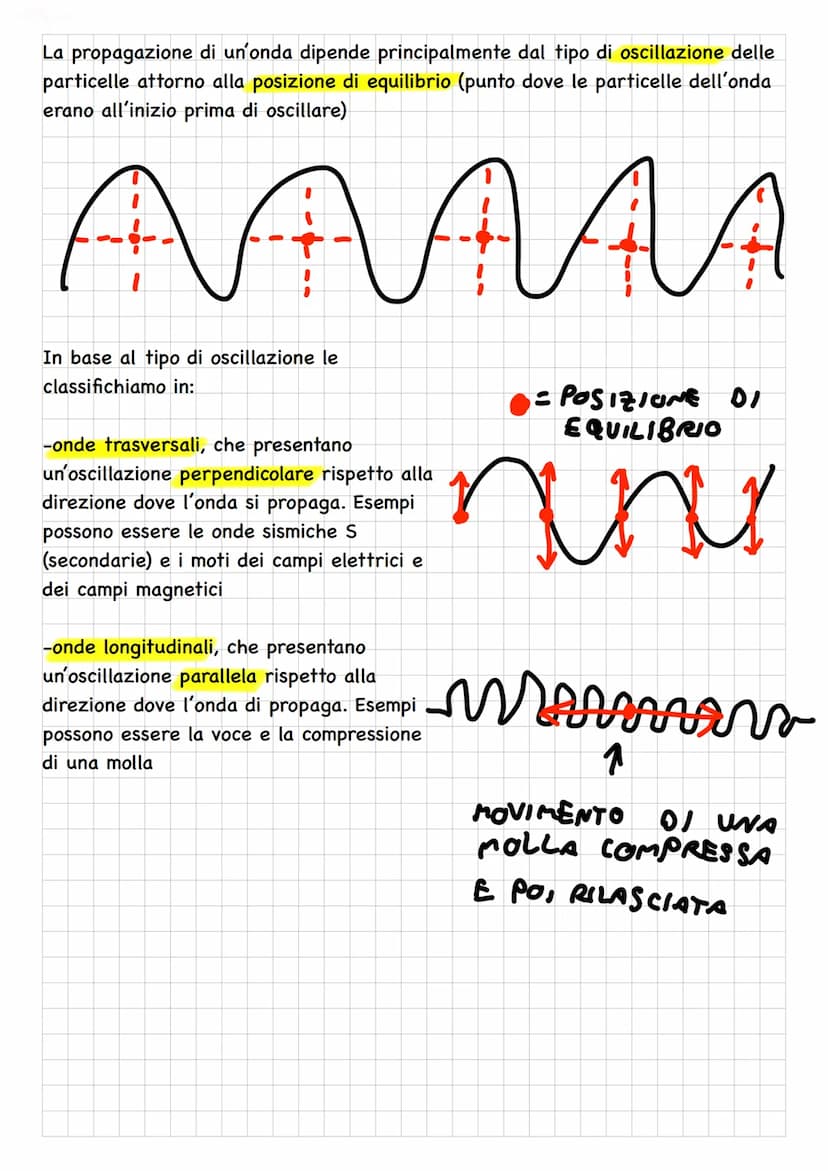 La propagazione di un'onda dipende principalmente dal tipo di oscillazione delle
particelle attorno alla posizione di equilibrio (punto dove le particelle dell'onda
erano all'inizio prima di oscillare)
In base al tipo di oscillazione le
classifichiamo in:
-onde trasversali, che presentano
un'oscillazione perpendicolare rispetto alla
direzione dove l'onda si propaga. Esempi
possono essere le onde sismiche S
(secondarie) e i moti dei campi elettrici e
dei campi magnetici
= POSIZIONE DI
EQUILIBRIO
-onde longitudinali, che presentano
un'oscillazione parallela rispetto alla
direzione dove l'onda di propaga. Esempi
possono essere la voce e la compressione
di una molla
MOVIMENTO DI UNA
MOLLA COMPRESSA
E POI RILASCIATA